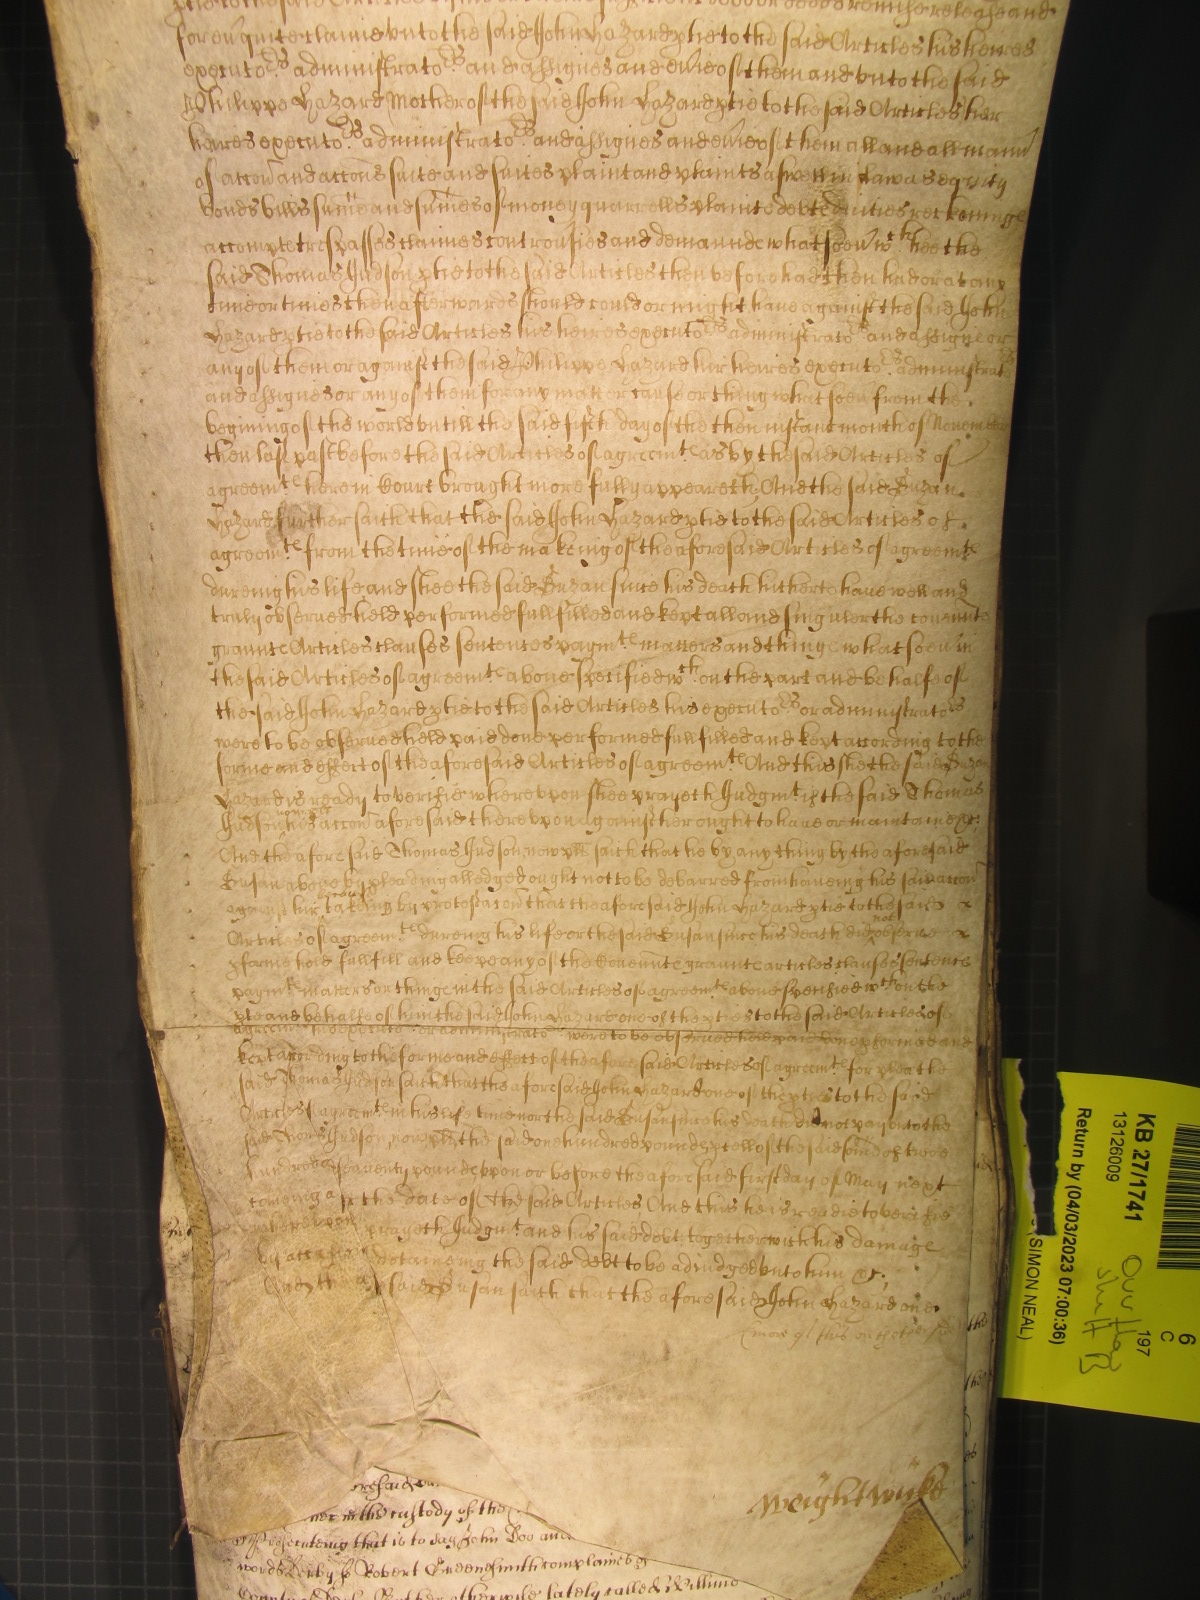 forever quite claime unto the said John Hazard ptie to the said Articles his heires
executors administrators and assignes and every of them and unto the said
Philippe Hazard Mother of the said John Hazard ptie to the said Articles her
heires executors administrators and assignes and every of them all and all mann
of accon and accons suite and suites plaint and plaints aswell in Lawe as equity
bonds bills sume and sumes of money quarrells plainte debte duties reckoninge
accompte trespasses claimes controvsies and demaunde whatsoevr wch hee the
said Thomas Judson ptie to the said Articles then before had then had or at any
time or times then afterwards should could or might have against the said John
Hazard ptie to the said Articles his heires executors administrators and assignes or
any of them or against the said Philippe Hazard hir heires executors administrators
and assignes or any of them for any matter cause or thing whatsoevr from the
begining of the world untill the said fifth day of the then instant month of November
then last past before the said Articles of agreemte as by the said Articles of
agreemte here in Court brought more fully appeareth And the said Suzan
Hazard further saith that the said John Hazard ptie to the said Articles of
agreemte from the time of the makeing of the aforesaid Articles of agreemte
dureing his life and shee the said Suzan since his death hitherto have well and
truly observed held performed fullfilled and kept all and singuler the covennte
graunte Articles clauses sentences paymte matters and thinge whatsoevr in
the said Articles of agreemte above specified wch on the part and behalfe of
the said John Hazard ptie to the said Articles his executors or administrators
were to be observed held paid done performed fullfilled and kept according to the
forme and effect of the aforesaid Articles of agreemte And this shee the said Suzan
Hazard is ready to verifie whereupon shee prayeth Judgmt if the said Thomas
Judson his accon aforesaid thereupon against her ought to have or maintaine &c
And the aforesaid Thomas Judson now plt saith that he by any thing by the aforesaid
Susan above by pleading alledged ought not to be debarred from haveing his said accon
against hir because takeing by protestacon that the aforesaid John Hazard ptie to the said
Articles of agreemte dureing his life or the said Susan since his death did not observe
pforme hold fullfill and keepe any of the Covennte graunte articles clauses sentences
paymte matters or thinge in the said Articles of agreemte above specified wch on the
pte and behalfe of him the said John Hazard one of the pties to the said Articles of
agreemte his executors or administrators were to be observed held paid done pformed and
kept according to the forme and effect of the aforesaid Articles of agreemte for plea the
said Thomas Judson saith that the aforesaid John Hazard one of the pties to the said
Articles of agreemte in his life time nor the said Susan since his death did not pay unto the
said Thomas Judson now plt the said one hundred pounde pcell of the said some of twoe
hundred seaventy pounde uppon or before the aforesaid first day of May next
comeing after the date of the said Articles And this he is readie to verifie
whereuppon prayeth Judgmt and his said debt together with his damage
by occasion detaineing the said debt to be adiudged unto him &c.
And the said Susan saith that the aforesaid John Hazard one
(more of this on the other side
Weightwicke
aforesaid
in the custody of the
prosecuteing that is to say John Doo and
words Derby s Robert Greensmith complaines
otherwise lately called Willimo
KB 27/1741
13126009
Return by (04/03/2023 07:00:36)
SIMON NEAL)
197
6
C